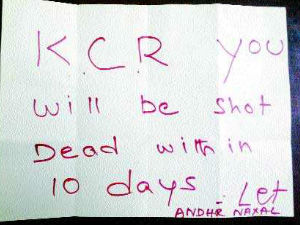 K.C.R you
will be shot
Dead with in
10 days. Let
ANDHR NAXAL